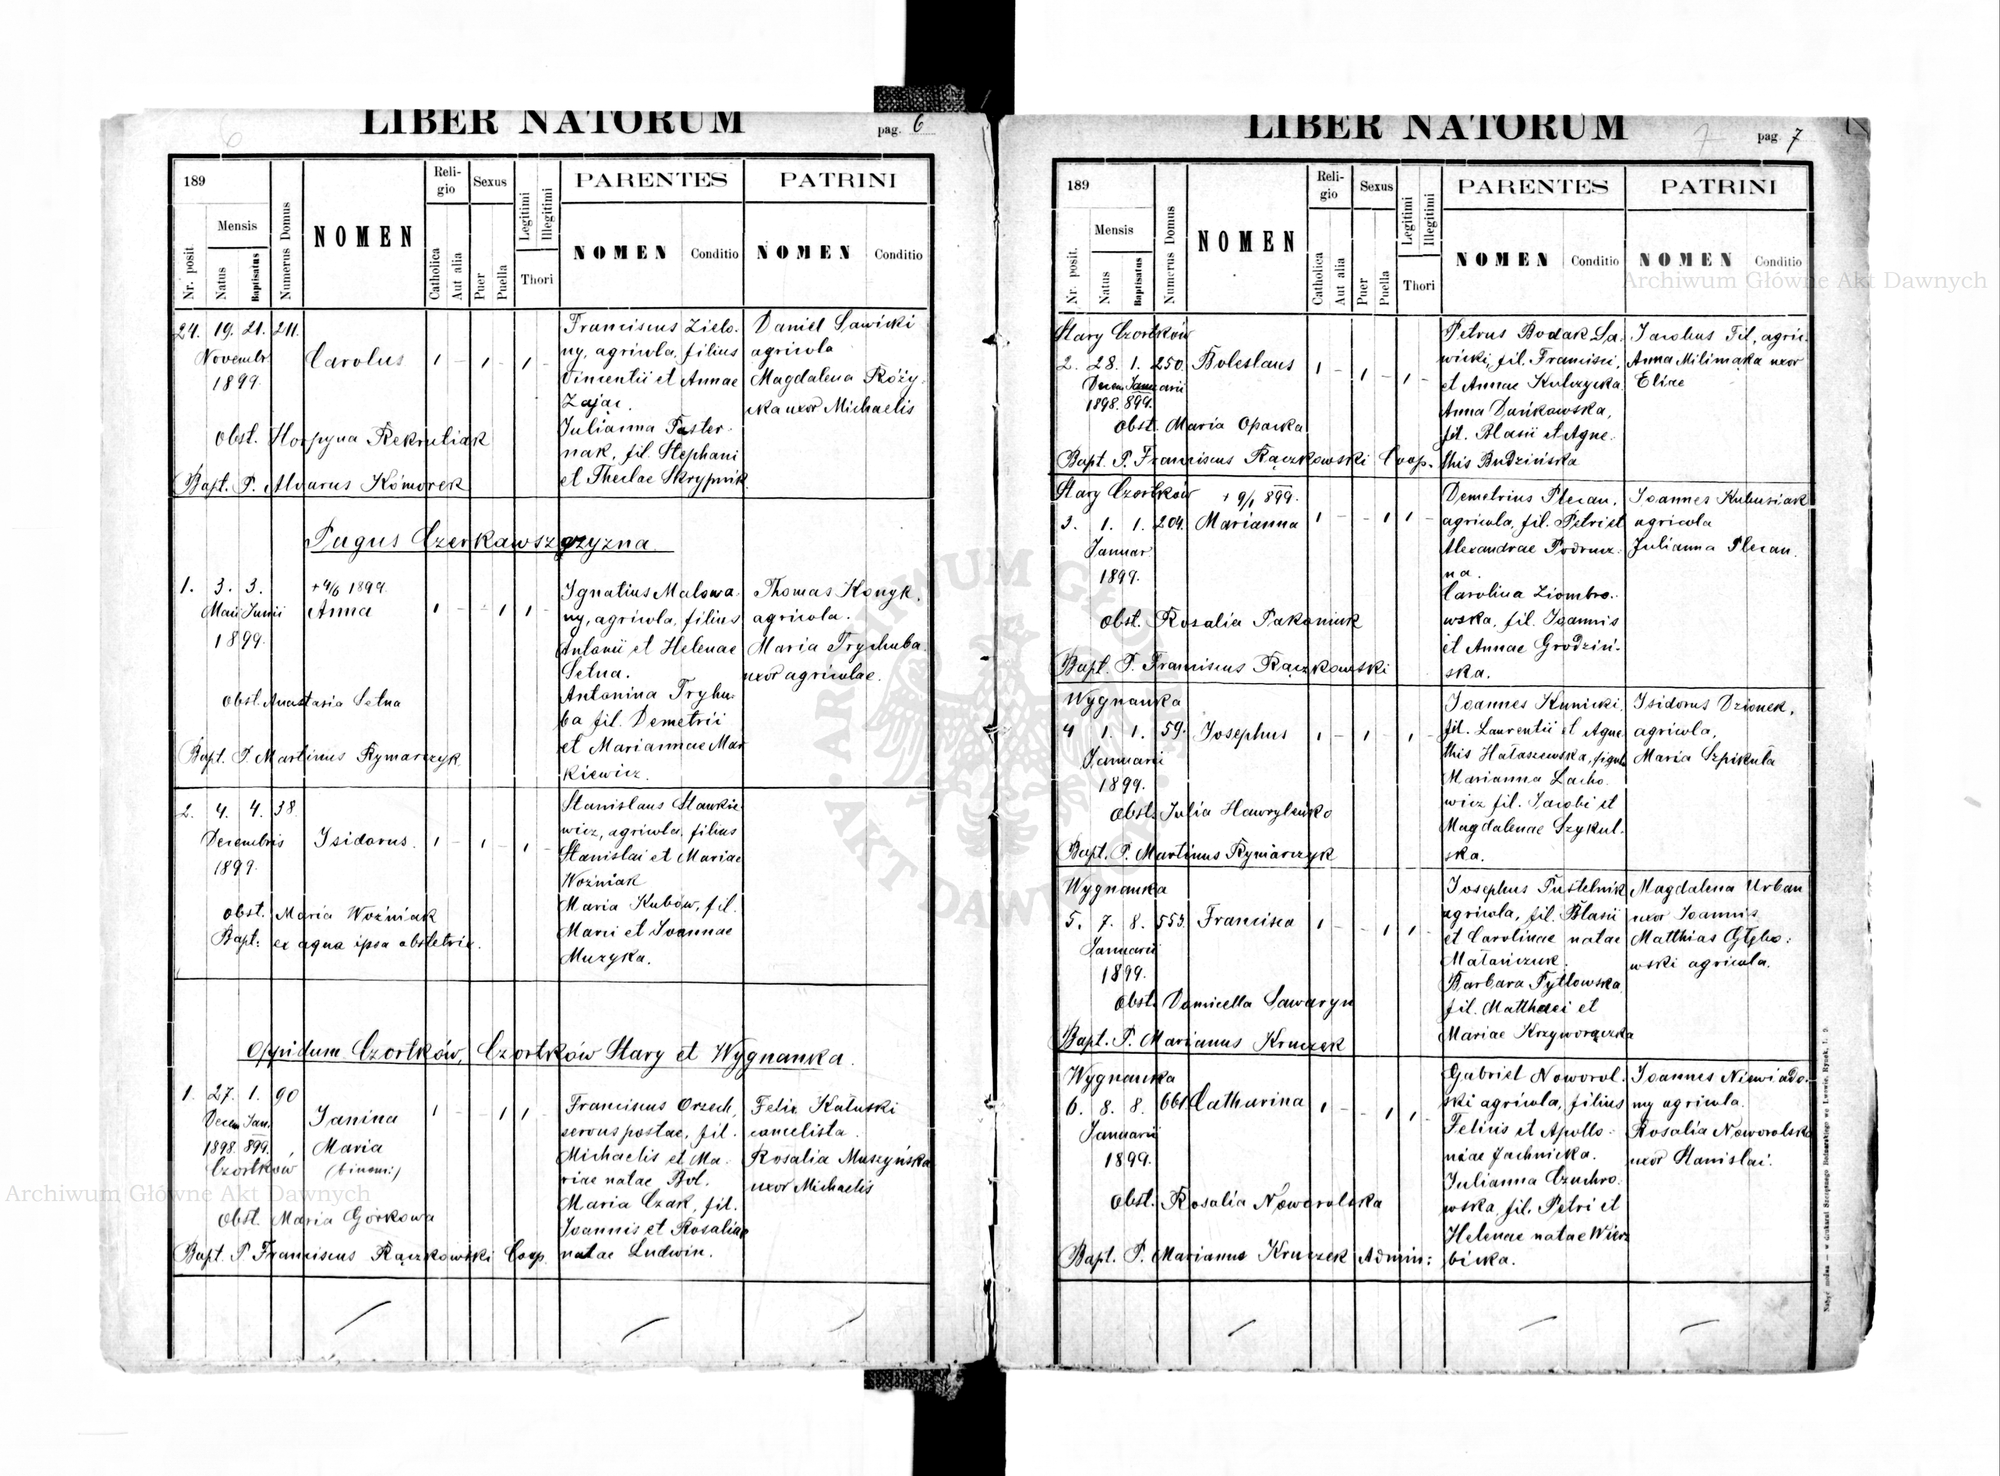 LIBER NATORUM
pag. 6
189
Nr. posit.
Mensis
Natus
Baptisatus
Numerus Domus
NOMEN
Religio
Catholica
Aut alia
Sexus
Puer
Puella
Legitimi
Illegitimi
Thori
PARENTES
NOMEN
Conditio
PATRINI
NOMEN
Conditio
24. 19. 21. 211.
Novembr
1899.
Carolus
Obst. Horpyna Rekrutiak
Bapt. P. Alvarus Komorek
Franciscus Zielo-
ny, agricola, filius
Vincentii et Annae
Zając.
Julianna Paster-
nak, fil. Stephani
et Theclae Skrypnik
Daniel Sawicki
agricola
Magdalena Róży-
cka uxor Michaelis
Pagus Czerkawszczyzna
1. 3. 3.
Maii Junii
1899.
+ 4/6 1899.
Anna
Obst. Anastasia Setna
Bapt. P. Martinus Rymarczyk
Ignatius Malowa-
ny, agricola, filius
Antonii et Helenae
Setna.
Antonina Tryhu-
ba fil. Demetrii
et Mariannae Mar
kiewicz.
Thomas Konyk,
agricola.
Maria Trychuba
uxor agricolae.
2. 4. 4. 38.
Decembris
1899.
Isidorus.
Obst. Maria Woźniak
Bapt: ex aqua ipsa obstetrix.
Stanislaus Stawkie
wicz, agricola, filius
Stanislai et Mariae
Woźniak
Maria Kubów, fil.
Marci et Joannae
Muzyka.
Oppidum Czortków, Czortków Stary et Wygnanka.
1. 27. 1. 90
Decem Jan.
1898. 899.
Czortków
Janina
Maria
(binom:)
Obst. Maria Górkowa
Bapt. P Franciscus Rączkowski Coop.
Franciscus Orzech,
servus postae, fil.
Michaelis et Ma-
riae natae Bol.
Maria Czak, fil.
Joannis et Rosaliae
natae Ludwin.
Felix Kałuski
cancelista.
Rosalia Muszyńska
uxor Michaelis
LIBER NATORUM
pag 7
189
Nr. posit.
Mensis
Natus
Baptisatus
Numerus Domus
NOMEN
Religio
Catholica
Aut alia
Sexus
Puer
Puella
Legitimi
Illegitimi
Thori
PARENTES
NOMEN
Conditio
PATRINI
NOMEN
Conditio
Stary Czortków
2. 28. 1. 250.
Decem Januarii
1898. 899.
Boleslaus
Obst. Maria Opacka
Bapt. P. Franciscus Rączkowski Coop.
Petrus Bodak Sa-
wicki, fil. Francisci,
et Annae Kulczycka
Anna Dańkowska,
fil. Blasii et Agne-
this Budzińska
Jacobus Fil, agric.
Anna Milimąka uxor
Eliae
Stary Czortków + 9/1 899.
3. 1. 1. 204.
Januar
1899.
Marianna
Obst. Rosalia Pakoniuk
Bapt. P. Franciscus Rączkowski
Demetrius Plecan,
agricola, fil. Petri et
Alexandrae Podrucz-
na.
Carolina Ziombro-
wska, fil. Joannis
et Annae Grodziń-
ska.
Joannes Kubusiak
agricola
Julianna Plecan.
Wygnanka
4 1. 1. 59.
Januarii
1899.
Josephus
Obst. Julia Hawryleńko
Bapt. P. Martinus Rymarczyk
Joannes Kunicki,
fil. Laurentii et Agne-
this Hałaszewska, figul.
Marianna Lacho
wicz fil. Jacobi et
Magdalenae Szykul-
ska.
Isidorus Dzionek,
agricola,
Maria Szpikula
Wygnanka
5. 7. 8. 553.
Januarii
1899.
Francisca
Obst. Domicella Sawaryn
Bapt. P. Marianus Kruczek
Josephus Pustelnik
agricola, fil. Blasii
et Carolinae natae
Matańczuk.
Barbara Pytlowska
fil. Matthaei et
Mariae Krzyworączka
Magdalena Urban
uxor Joannis
Matthias Głębo-
wski agricola.
Wygnanka
6. 8. 8. 661.
Januarii
1899.
Catharina
Obst. Rosalia Noworolska
Bapt. P. Marianus Kruczek Admin:
Gabriel Noworol-
ski agricola, filius
Felicis et Apollo-
niae Jachnicka.
Julianna Czuchro-
wska, fil. Petri et
Helenae natae Wierz
bicka.
Joannes Niewiado-
my agricola.
Rosalia Noworolska
uxor Stanislai.
Archiwum Główne Akt Dawnych
Archiwum Główne Akt Dawnych
ARCHIWUM GŁÓWNE AKT DAWNYCH